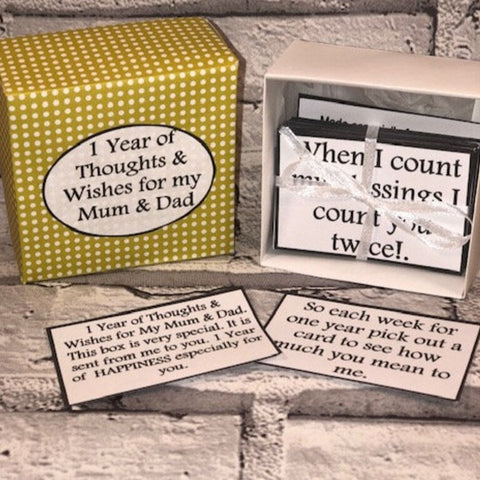 1 Year of
Thoughts &
Wishes for my
Mum & Dad
When I count
my blessings I
count you
twice!.
1 Year of Thoughts &
Wishes for My Mum & Dad.
This box is very special. It is
sent from me to you. 1 Year
of HAPPINESS especially for
you.
So each week for
one year pick out a
card to see how
much you mean to
me.